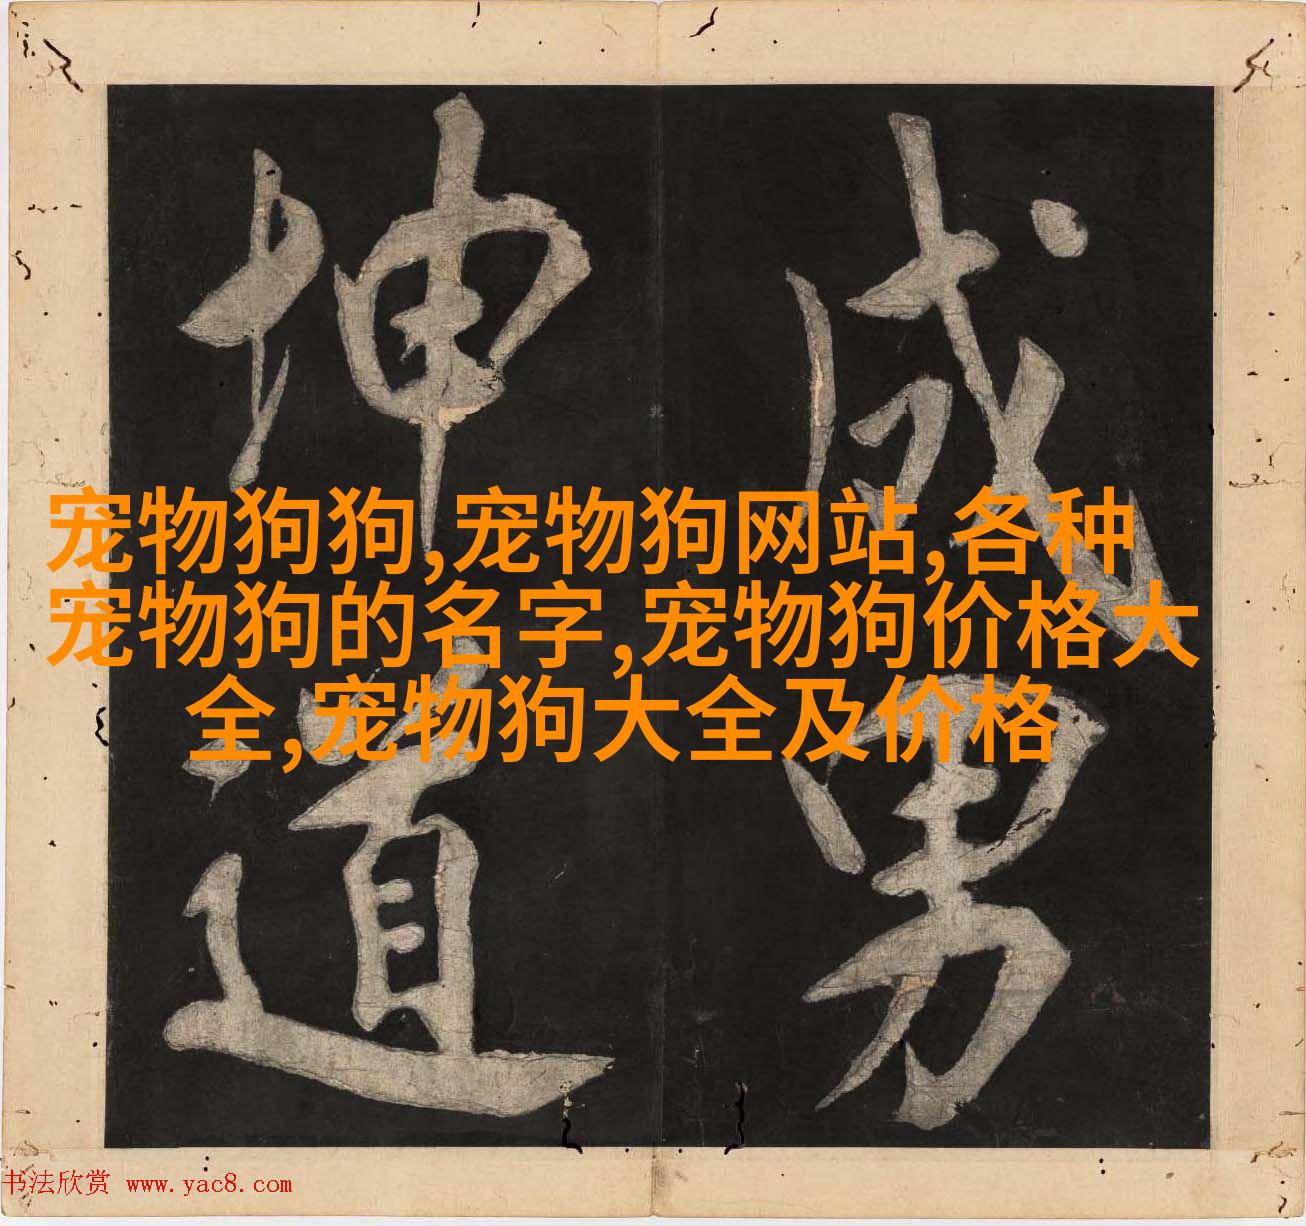 成男
坤道
宠物狗狗,宠物狗网站,各种
宠物狗的名字,宠物狗价格大
全,宠物狗大全及价格
书法欣赏 www.yac8.com